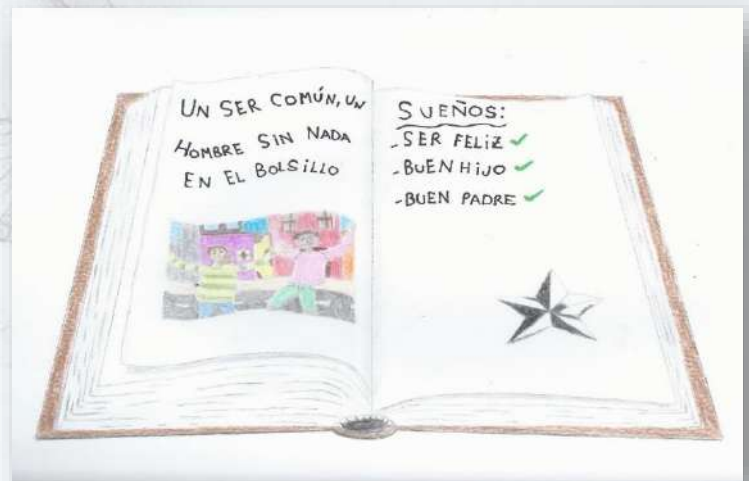 UN SER COMÚN, UN
HOMBRE SIN NADA
EN EL BOLSILLO
SUEÑOS:
-SER FELIZ ✓
-BUEN HIJO ✓
-BUEN PADRE ✓